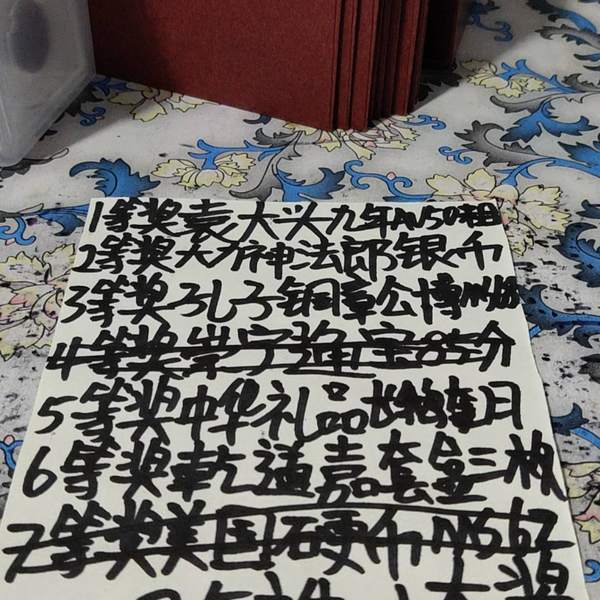 1等奖袁大头九年AU50粗
2等奖大力神法郎银币
3等奖孔子铜章公博MS68
4等奖崇宁通宝85分
5等奖中华礼品
6等奖乾通嘉套叁枚
7等奖美国硬币MS67
大奖